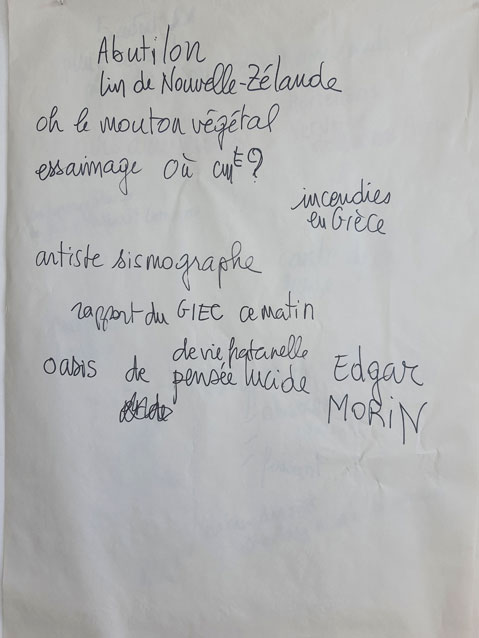 Abutilon
lin de Nouvelle-Zélande
oh le mouton végétal
essaimage où cmt?
incendies
en Grèce
artiste sismographe
rapport du GIEC ce matin
de vie fraternelle
oasis de pensée lucide Edgar
MORIN